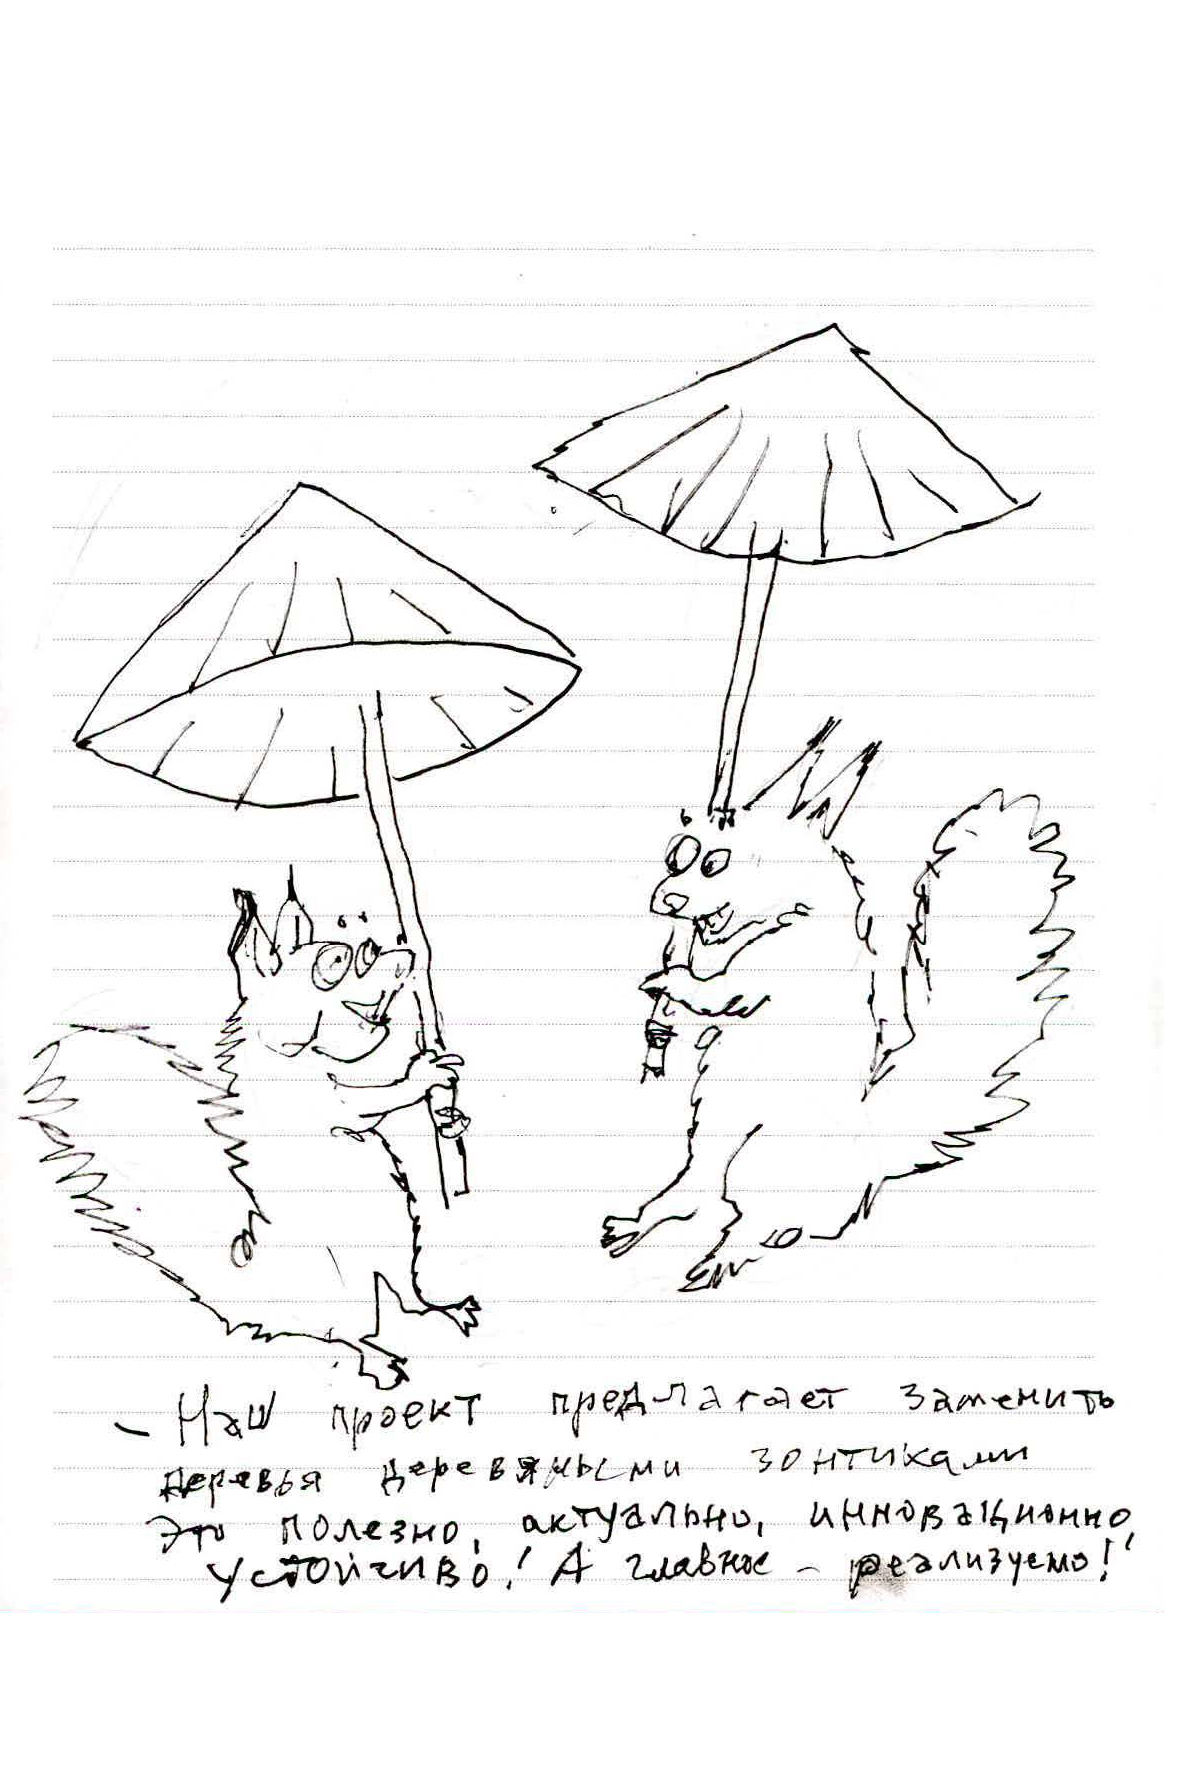 – Наш проект предлагает заменить
деревья деревяными зонтиками
Это полезно, актуально, инновационно,
устойчиво! А главное – реализуемо!